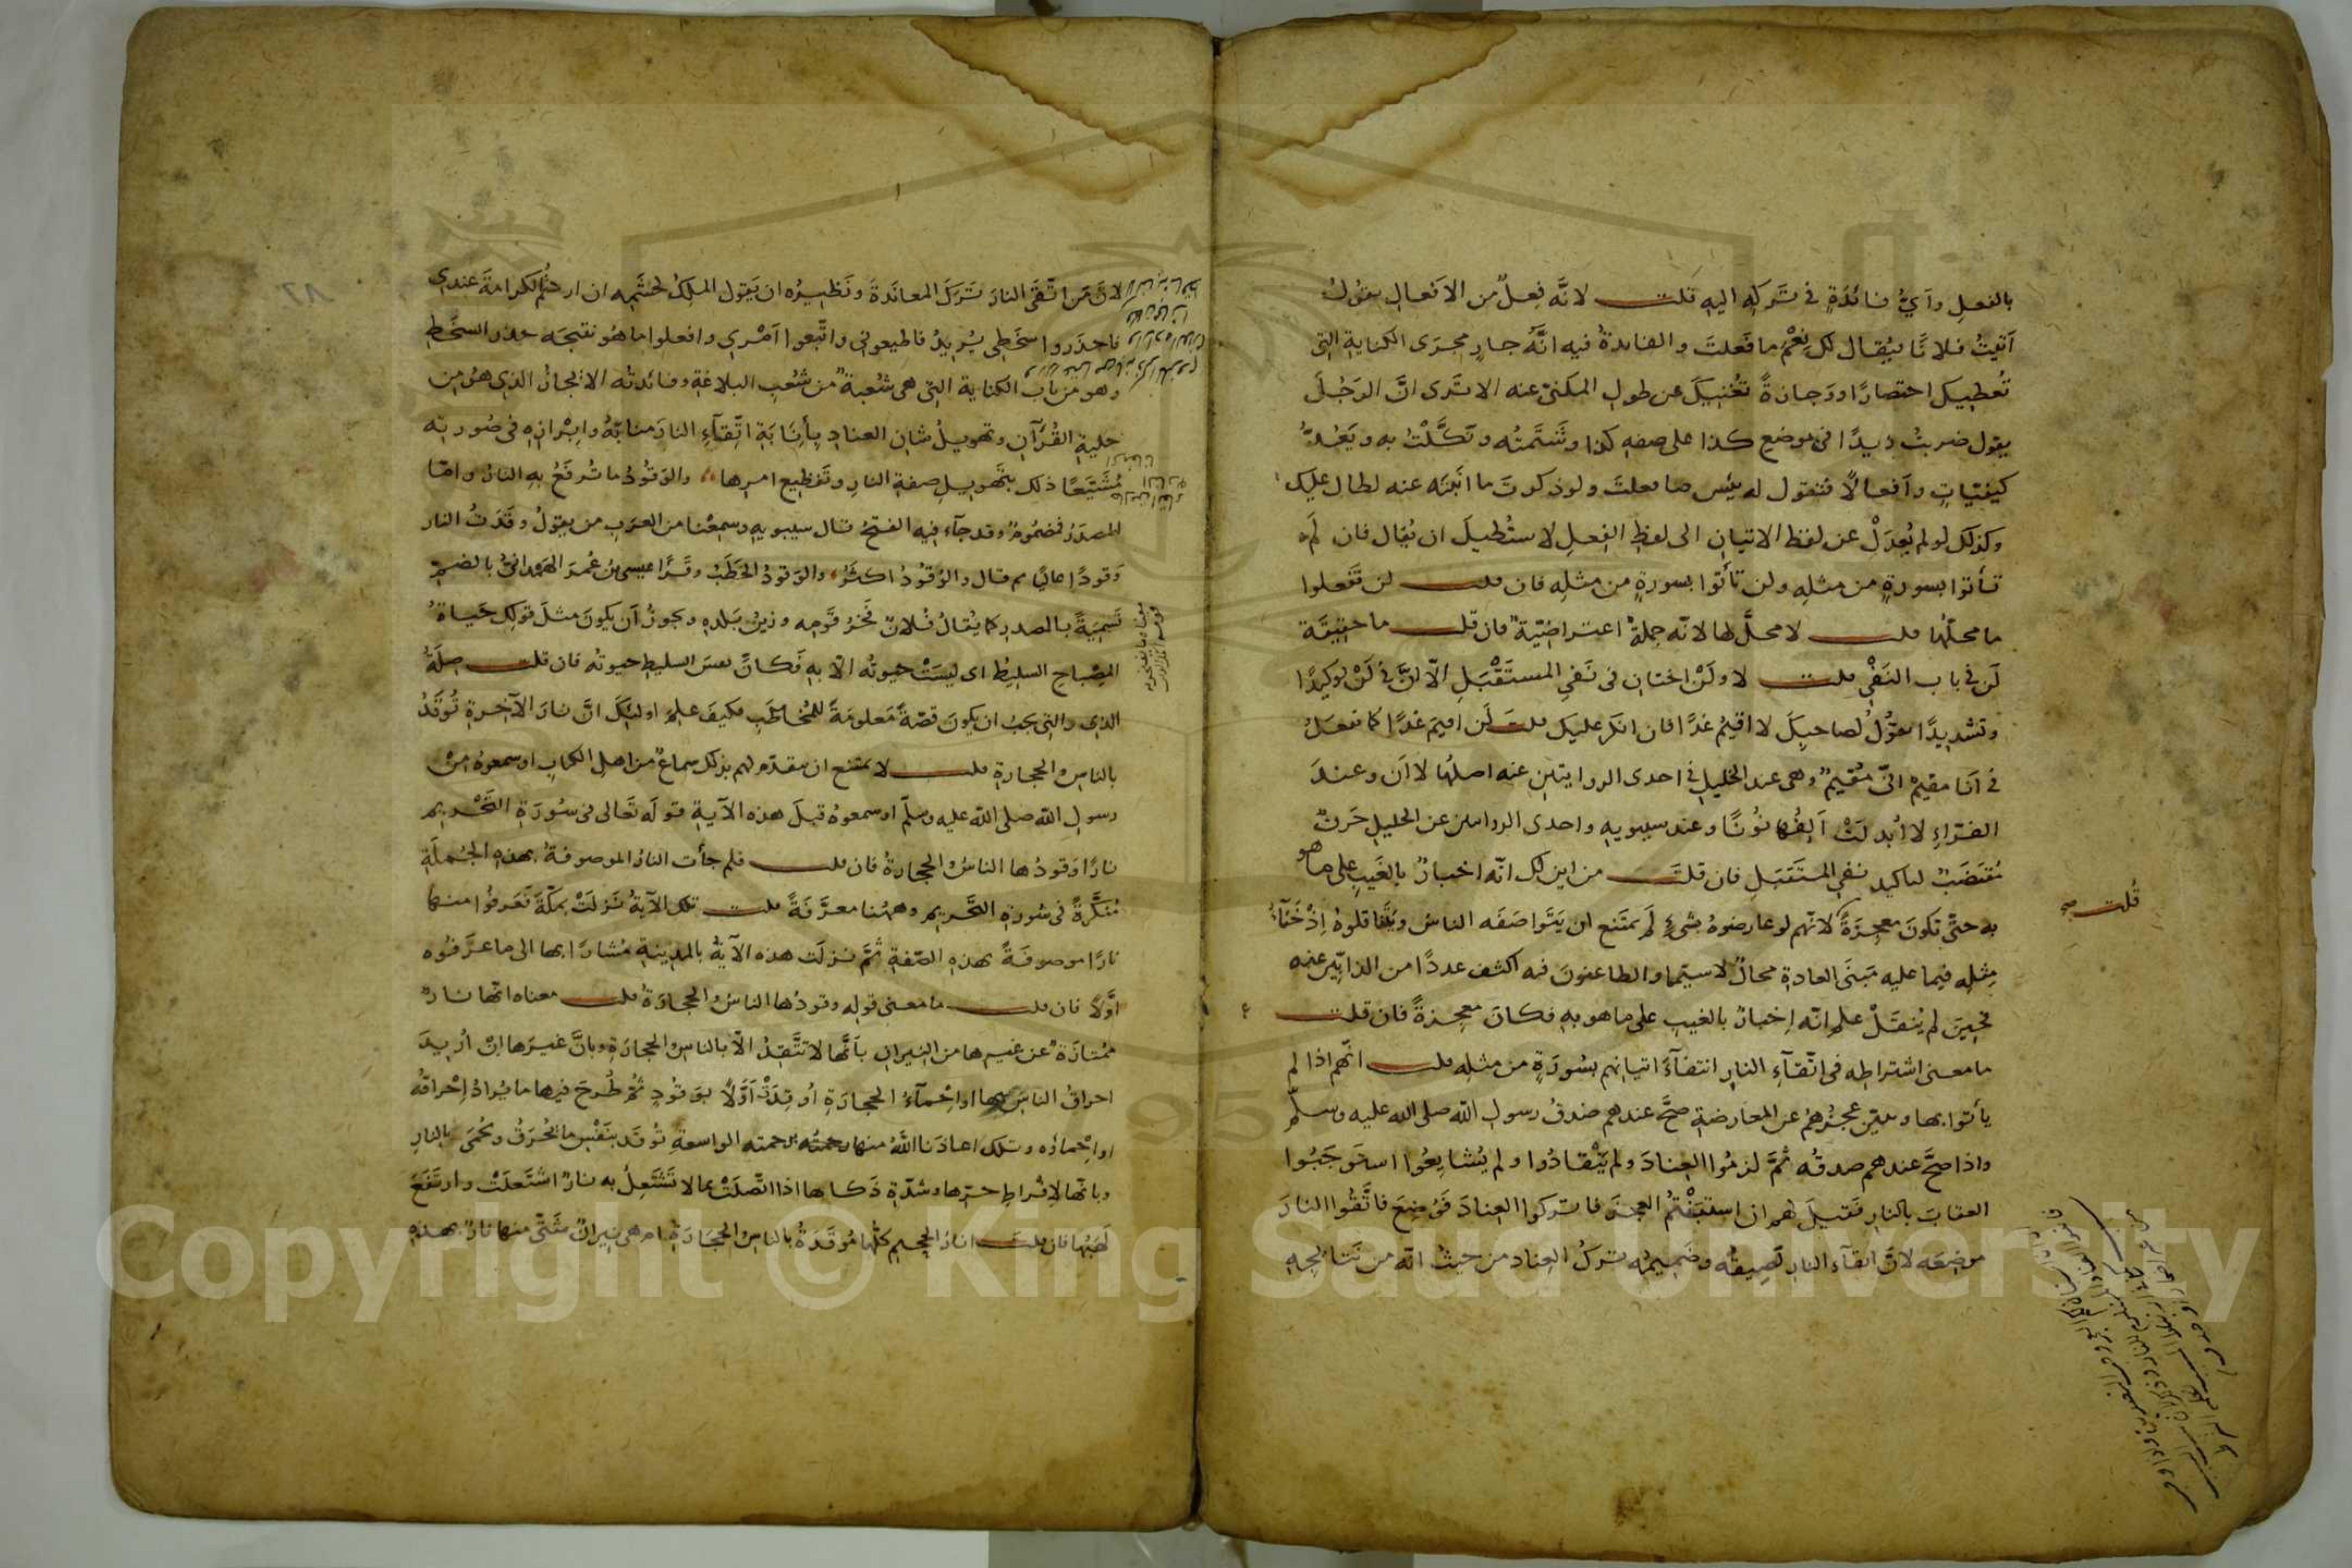 بالفعل وأيّ فائدة في تركه اليه قلت لانّه فعلٌ من الافعال يقول
أتيتُ فلانًا فيُقال لك نِعْمَ ما فعلتَ والفايدةُ فيه انّه جارٍ مجرَى الكناية التي
تُعطيك اختصارًا ووَجازةً تغنيكَ عن طول المكنى عنه الا ترى انّ الرجُلَ
يقول ضربتُ زيدًا في موضع كذا على صفه كذا وشتمتُه ونكّلتُ به ويَعُدُّ
كيفيّاتٍ وأفعالًا فتقول له بئس ما فعلتَ ولو ذكرتَ ما انَبتَه عنه لطال عليك
وكذلك لو لم يُعدَلْ عن لفظ الاتيان الى لفظِ الفعلِ لاستُطيلَ ان يُقال فان لم
تأتوا بسورةٍ من مثلِه ولن تأتوا بسورةٍ من مثلِه فان قلت لن تفعلوا
ما محلّها قلت لا محلَّ لها لانّه جملةٌ اعتراضيّةٌ فان قلت ما حقيقة
لن في باب النَفْي قلت لا ولَنْ اختان في نفي المستقْبَل الّا انّ في لَنْ توكيدًا
وتشديدًا تقُولُ لصاحبِكَ لا اقيمُ غدًا فان انكر عليك قلتَ لَن اقيمَ غدًا كما تفعلُ
في أنا مقيمٌ انّي مُقيمٌ وهي عند الخليل في احدى الروايتين عنه اصلُها لا أن وعندَ
الفرّاءِ لا ابدلَتْ ألِفُها نُونًا وعند سيبويه واحدى الروايتين عن الخليل حرفٌ
مُقتَضَبٌ لتاكيد نفي المستقبَلِ فان قلتَ من اين لك انّه اخبارٌ بالغيب على ما هو
به حتّى تكونَ معجزةً لانّهم لو عارضوهُ بشيءٍ لم يمتنع ان يَتَواصَفَه الناسُ ويتناقلوهُ اِذْ خَفاءُ
مِثلِه فيما عليه مَبنَى العادةِ محالٌ لا سيّما والطاعنونَ فيه اكثف عددًا من الذابّين عنه
فحينَ لم يُنقَلْ علم انّه اِخبارٌ بالغيبِ على ما هو به فكانَ معجزةً فان قلت
ما معنى اشتراطِه في اتّقاءِ النار انتفاءَ اتيانهم بسُورَةٍ من مثله قلت انّهم اذا لم
يأتوا بها وتبيّن عجزُهم عن المعارضة صحَّ عندهم صدقُ رسول الله صلى الله عليه وسلّم
واذا صحَّ عندهم صدقُه ثمّ لزمُوا العِنادَ ولم يَنْقادُوا ولم يُشايِعُوا استوجَبُوا
العقابَ بالنار فقيلَ لهم ان استَبَنْتُم العجزَ فاتركوا العِنادَ فوُضِعَ فاتّقُوا النارَ
موضِعَه لانّ اتقاءَ النار لَصِيقُه وضَمِيمُه تركُ العِناد من حيثُ انّه من نتائجِه
قلت صح
لانّ من اتّقَى النارَ تركَ المعاندةَ ونَظيرُه ان يقول الملِكُ لحَشَمِه ان اردتُم الكرامةَ عندي
فاحذَروا سخَطي يُريدُ فاطيعوني واتّبعوا أمْري وافعلوا ما هو نتيجَه حذر السخَط
وهو من باب الكناية التي هي شُعبةٌ من شُعَبِ البلاغة وفائدتُه الايجازُ الذي هو من
حلية القُرآن وتهويلُ شان العناد بِإنابَةِ اتّقاءِ النارِ منابَهُ وابْرازِه في صُورتِه
مُشَيَّعًا ذلك بتهويلِ صفةِ النارِ وتَفظيع امرِها والوَقودُ ما تُرفَعُ به النارُ وامّا
المصدَرُ فمضمُومٌ وقد جآء فيه الفتحُ قال سيبويه وسمعْنا من العرَب من يقولُ وقَدَتُ النار
وَقودًا عاليًا ثم قال والوُقُودُ اكثَرُ والوَقودُ الحَطَبُ وقرَا عيسى بنُ عُمرَ الهَمْدانيّ بالضمّ
تَسمِيَةً بالمصدر كما يُقالُ فُلانٌ فَخرُ قَومِه وزينُ بَلدِه ويجوزُ أن يكونَ مثلَ قولِك حَياةُ
المِصْباحِ السليطُ اي ليسَتْ حيوتُه الّا به فكانَّ نفسَ السليط حيوتُه فان قلت صِلَةُ
الذي والتي يجبُ ان يكونَ قصّةً مَعلومَةً للمُخاطَبِ فكيفَ علِمَ اولئكَ انّ نارَ الآخرةِ تُوقَدُ
بالناسِ والحجارةِ قلت لا يمتنع ان يتقدّم لهم بذلك سماعٌ من اهل الكتاب او سمعوهُ من
رسول الله صلى الله عليه وسلّم او سمعوهُ قبلَ هذه الآيةِ قوله تَعالى في سُورَةِ التَّحْريمِ
نارًا وَقودُها الناسُ والحجارةُ فان قلت فلم جأت النارُ الموصوفةُ بهذه الجُملَةِ
مُنَكَّرةً في سُورةِ التَّحريمِ وههُنا معرّفَةً قلت تلك الآيةُ نَزلَتْ بمكّةَ فَعَرفُوا منها
نارًا موصوفَةً بهذه الصّفةِ ثمّ نزلت هذه الآيةُ بالمدينةِ مُشارًا بها الى ما عرَفُوه
اوَّلاً فان قلت ما معنى قولِه وقودُها الناسُ والحجارَةُ قلت معناه انّها نارٌ
مُمْتازَةٌ عن غيرها من النيرانِ بأنَّها لا تَتَّقِدُ الّا بالناسِ والحجارَةِ وبانَّ غيرَها اِنْ اُرِيدَ
احراقُ الناسِ بها او اِحْمآءُ الحجارَةِ اُوقِدَتْ اَوَّلاً بوَقُودٍ ثُمّ طُرحَ فيها ما يُرادُ اِحْراقُه
او اِحْماؤه وتلك اعاذَنا اللهُ منها برحمته الواسعةِ تُوقَد بنَفْسِ ما تُحْرَقُ وتُحمَى بالنارِ
وبانّها لاِفْراطِ حرّها وشدّةِ ذَكائها اذا اتّصلَتْ بما لا تَشْتَعِلُ به نارٌ اشتَعلَتْ وارتَفَعَ
لَهَبُها فان قلتَ انارُ الجحيمِ كلُّها مُوقَدَةٌ بالناسِ والحجَارَةِ ام هي نيرانٌ شَتّى منها نارٌ بهذه
Copyright © King Saud University